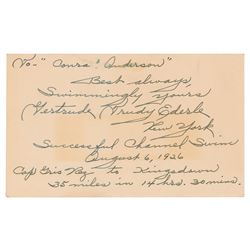 To - "Conrad Anderson"
Best always,
Swimmingly yours,
Gertrude "Trudy" Ederle
New York
Successful Channel Swim
August 6, 1926
Cap Gris Nez to Kingsdown
35 miles in 14 hrs. 30 mins.